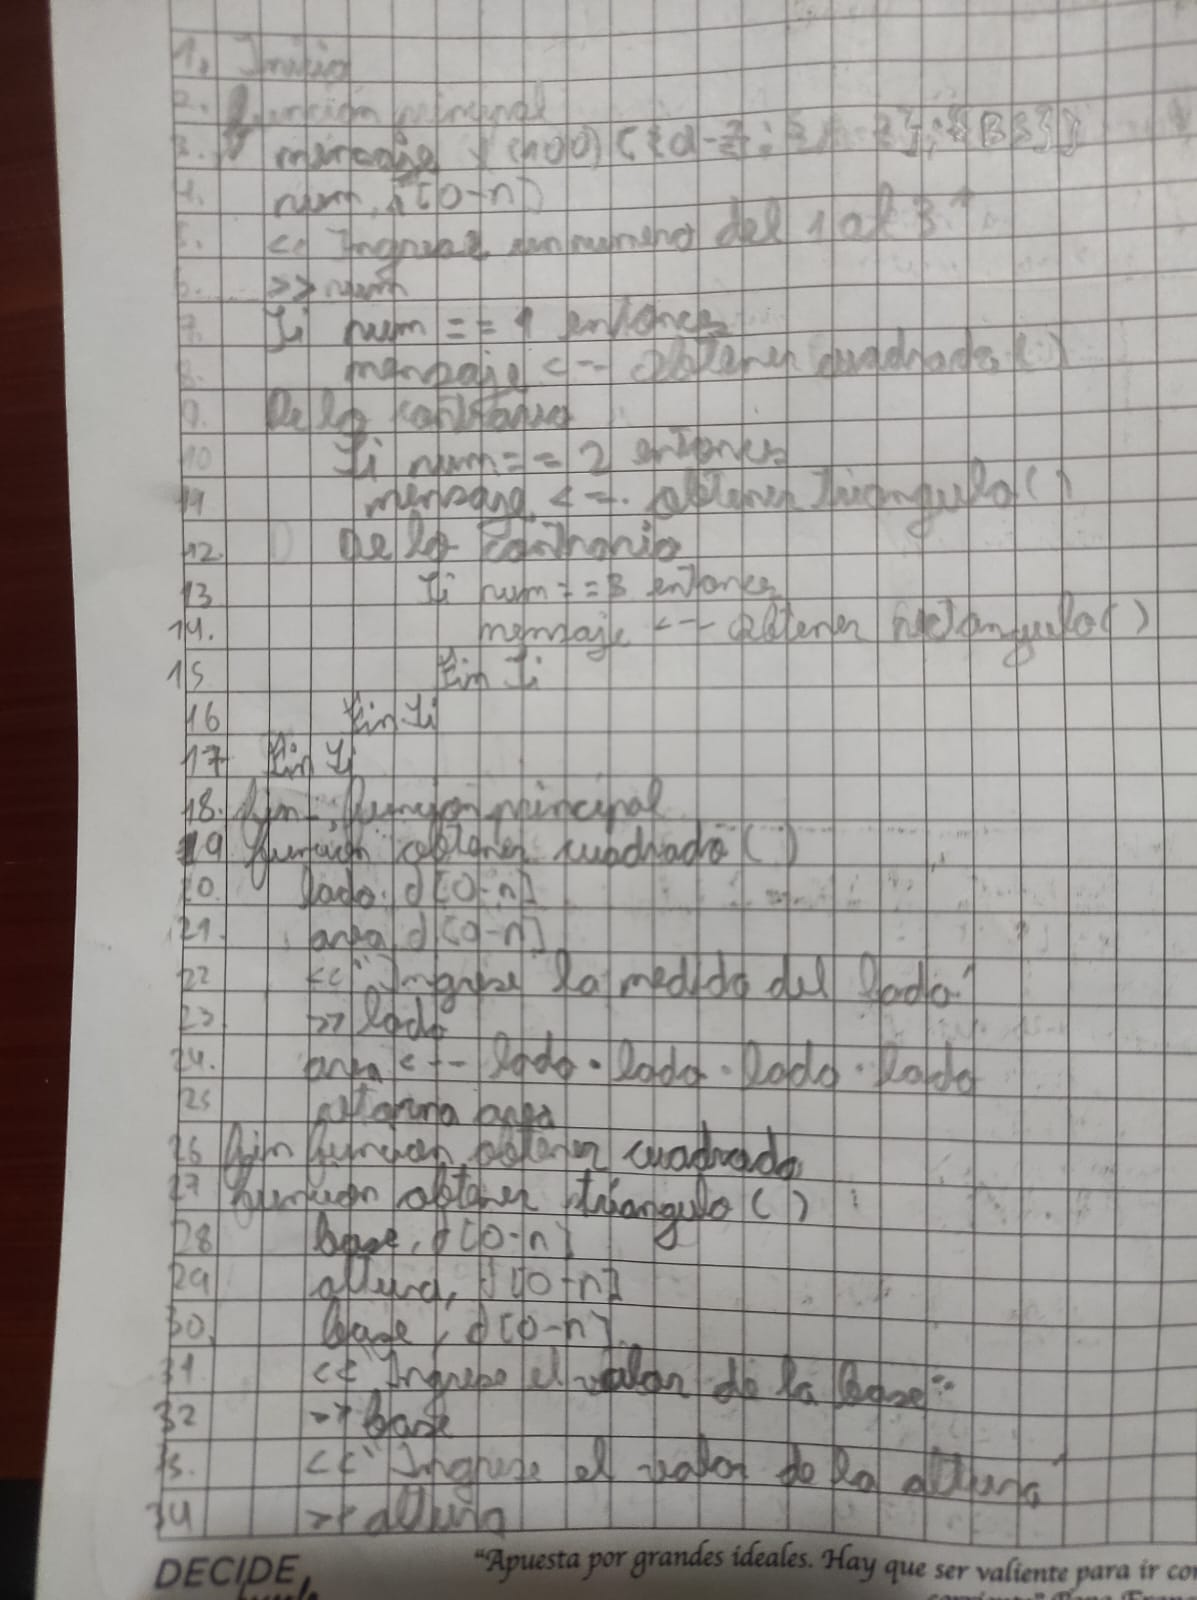 1. Inicio
2. función principal
3. mensaje (100)
4. num, i [0-n]
5. << Ingrese un numero del 1 al 3"
6. >> num
7. Si num == 1 entonces
8. mensaje <-- obtener cuadrado ( )
9. De lo contrario
10 Si num == 2 entonces
11 mensaje <-- obtener triangulo ( )
12. De lo contrario
13 Si num == 3 entonces
14. mensaje <-- obtener rectangulo ( )
15 Fin Si
16 Fin Si
17 Fin Si
18. Fin función principal
19 función obtener cuadrado ( )
20. lado, d [0-n]
21. area, d [0-n]
22 << "Ingrese la medida del lado"
23 >> lado
24. area <-- lado · lado · lado · lado
25 retorna area
26 Fin función obtener cuadrado
27 función obtener triangulo ( )
28 base, d [0-n]
29 altura, d [0-n]
30. base, d [0-n]
31 << Ingrese el valor de la base"
32 >> base
33. << "Ingrese el valor de la altura"
34 >> altura
DECIDE,
"Apuesta por grandes ideales. Hay que ser valiente para ir